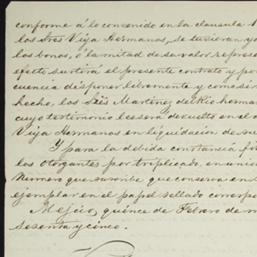 conforme á lo contenido en la clausula
los Sres Viya Hermanos, se tuvieran, y
los bonos, ó la mitad de su valor, represe
efecto surtirá el presente contrato y po
cuencia disponer libremente y como
hecho, los Sres Martinez del Rio herma
cuyo testimonio les será devuelto en el
Viya Hermanos en liquidacion de su
Y para la debida constancia fir
los otorgantes por triplicado, en union
Numero que suscribe que conserva en
ejemplar en el papel sellado corresp
Mejico, quince de Febrero de m
sesenta y cinco.